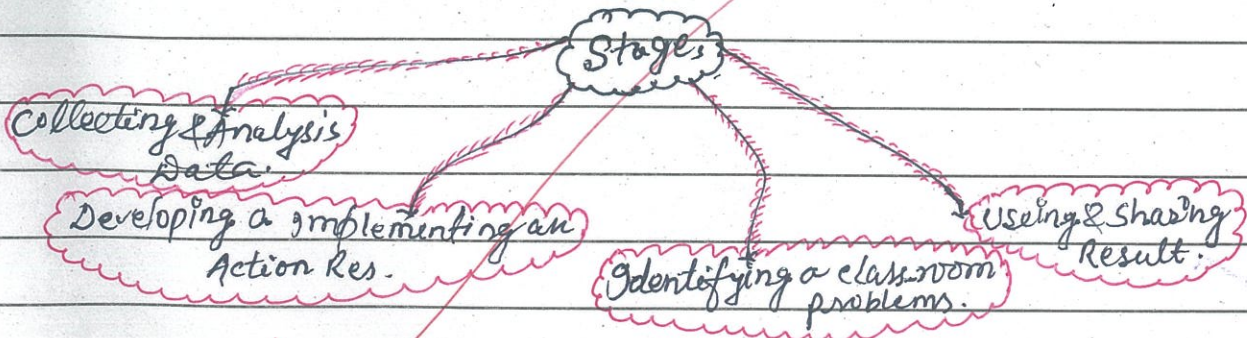 Stages
Collecting & Analysis
Data.
Developing a Implementing an
Action Res.
Identifying a classroom
problems.
Useing & Sharing
Result.